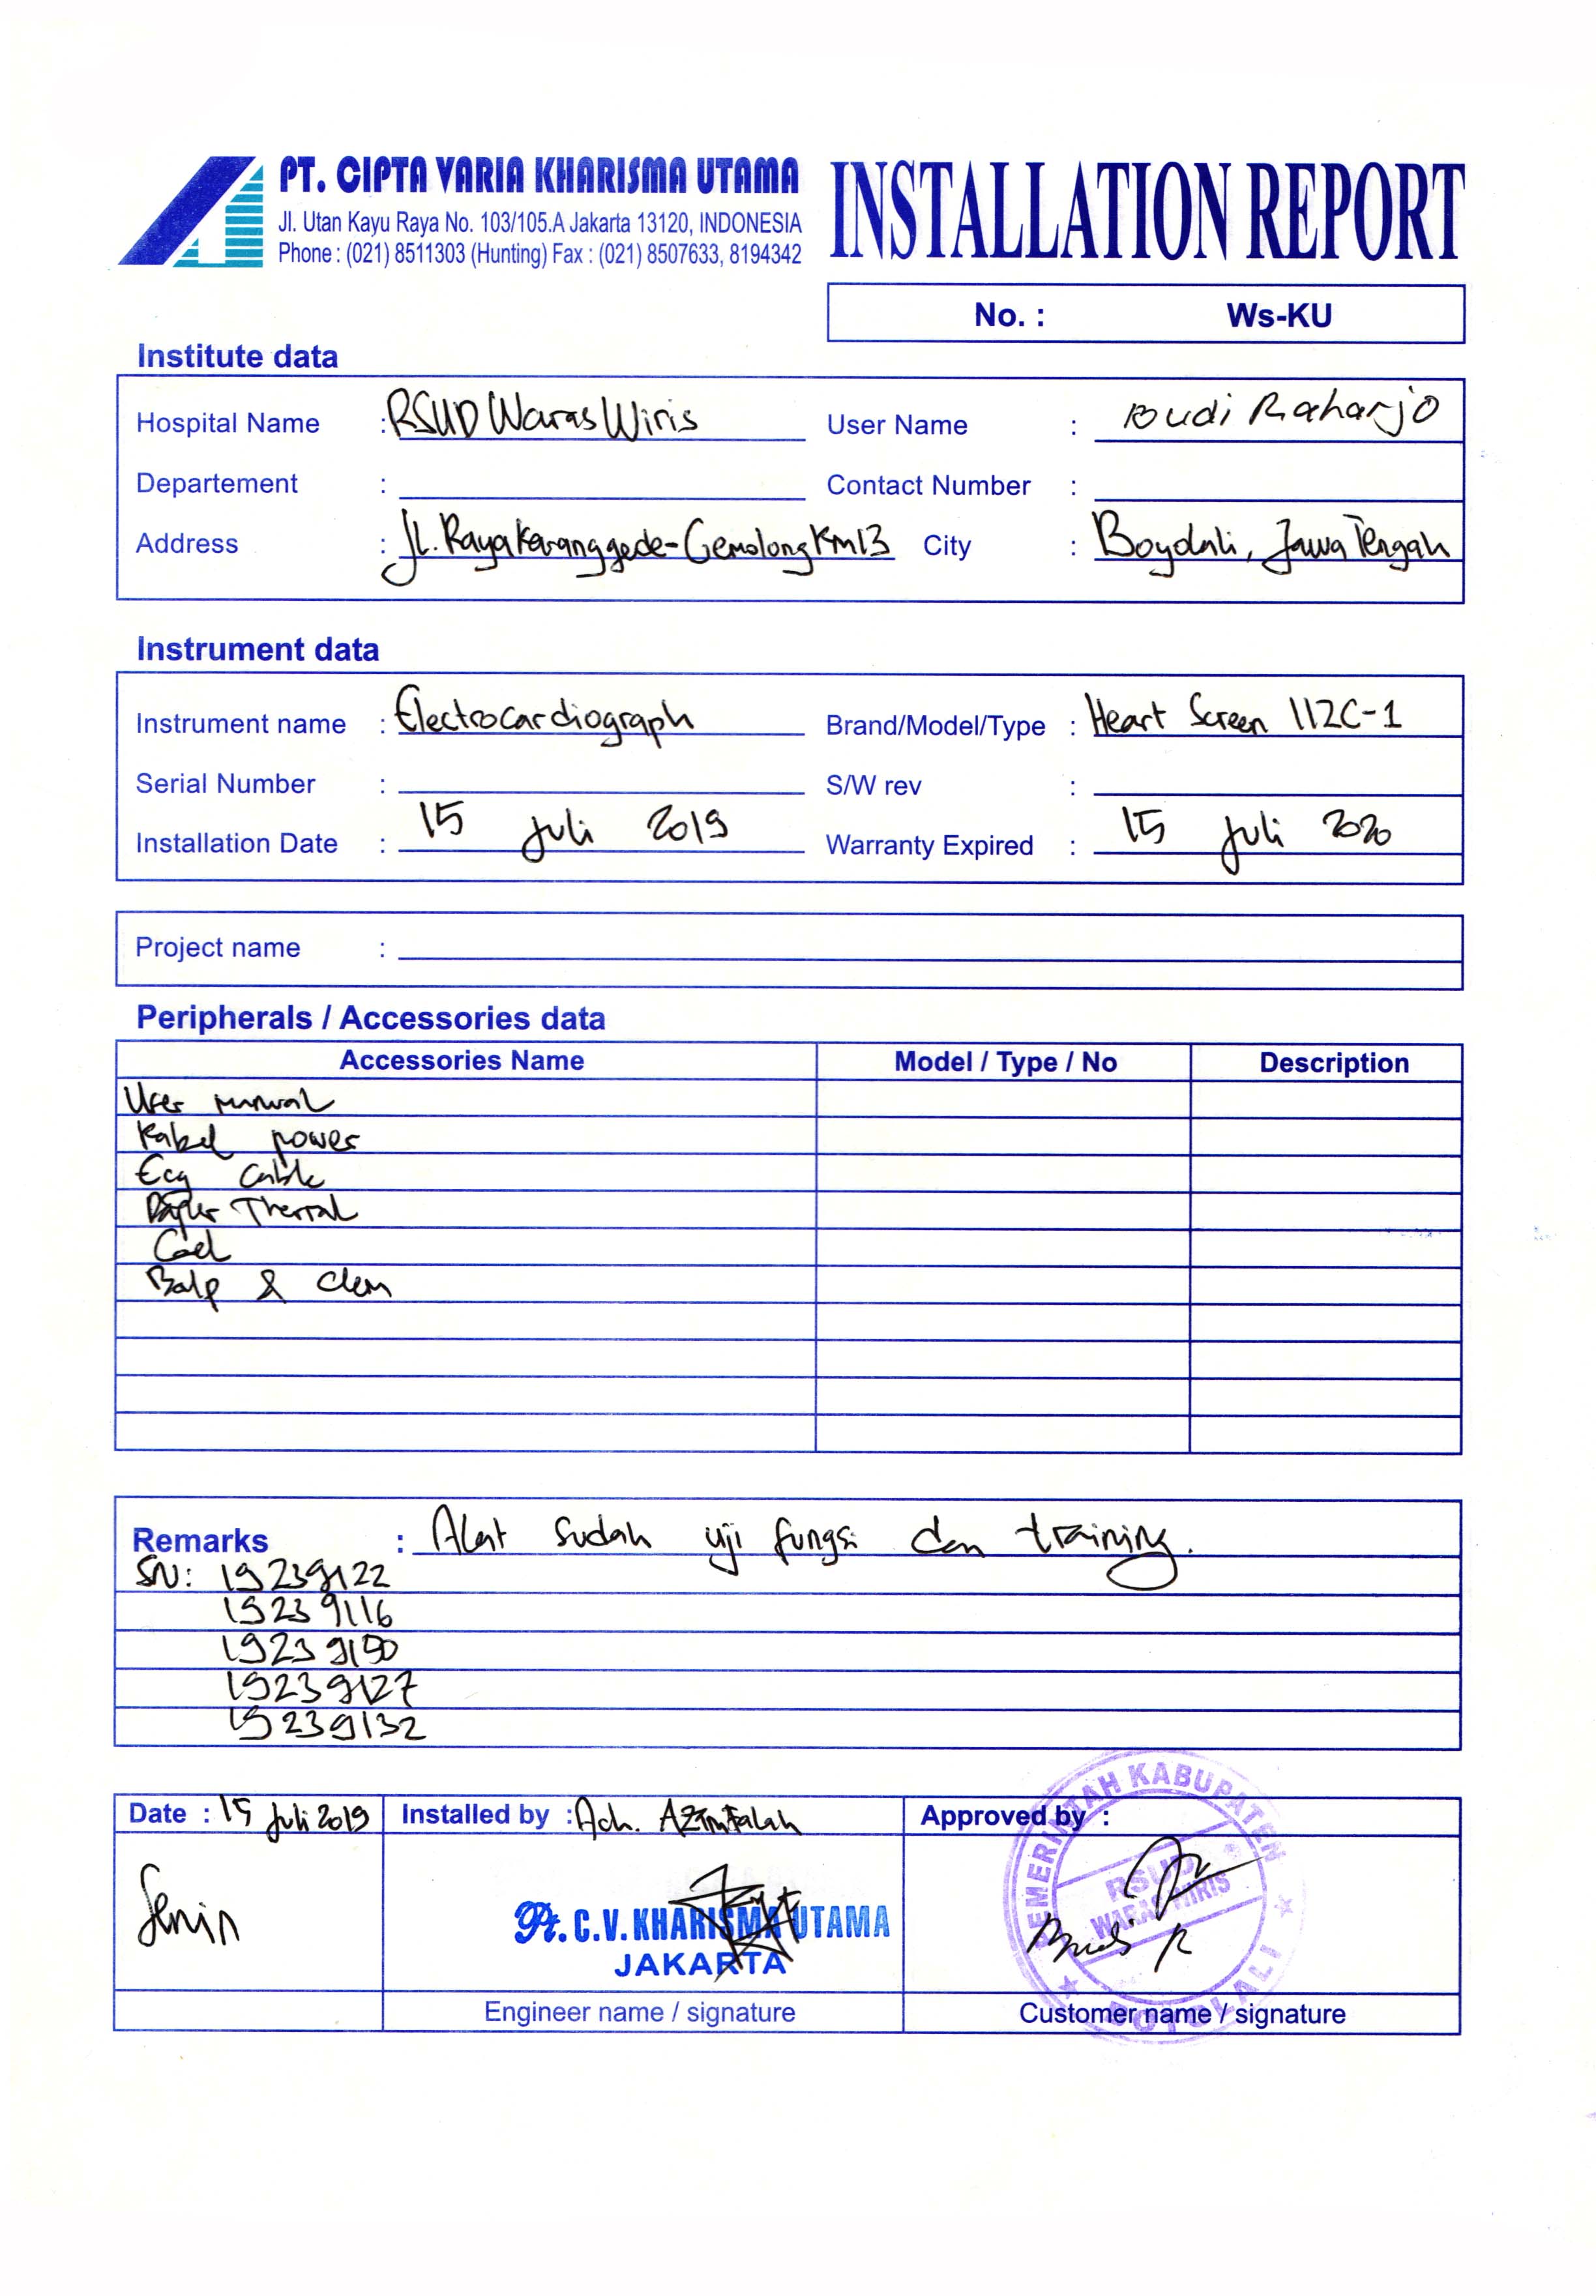 PT. CIPTA VARIA KHARISMA UTAMA
Jl. Utan Kayu Raya No. 103/105.A Jakarta 13120, INDONESIA
Phone : (021) 8511303 (Hunting) Fax : (021) 8507633, 8194342
INSTALLATION REPORT
No. : Ws-KU
Institute data
Hospital Name : RSUD Waras Wiris User Name : Budi Raharjo
Departement : Contact Number :
Address : Jl. Raya Karanggede-Gemolong Km 13 City : Boyolali, Jawa Tengah
Instrument data
Instrument name : Electrocardiograph Brand/Model/Type : Heart Screen 112C-1
Serial Number : S/W rev :
Installation Date : 15 Juli 2019 Warranty Expired : 15 Juli 2020
Project name :
Peripherals / Accessories data
Accessories Name Model / Type / No Description
User manual
Kabel power
Ecg Cable
Paper Thermal
Balp & clem
Remarks : Alat sudah uji fungsi dan training.
SN: 19239122
19239116
19239127
19239132
Date : 15 Juli 2019 Installed by : Ach. Approved by :
Senin
Pt. C.V. KHARISMA UTAMA
JAKARTA
PEMERINTAH KABUPATEN
RSUD
WARAS WIRIS
BOYOLALI
Budi R
Engineer name / signature Customer name / signature